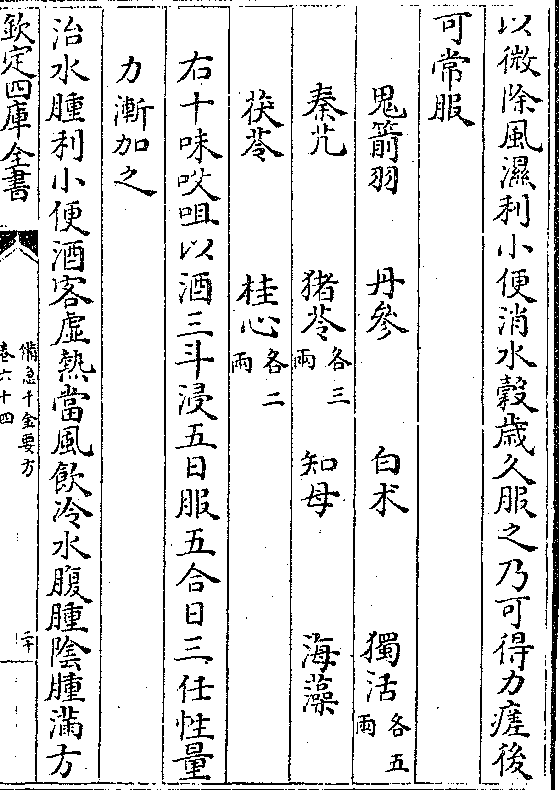 以微除風濕利小便消水穀歲久服之乃可得力瘥後
可常服
鬼箭羽　丹參　白朮　獨活各五兩
秦艽　猪苓各三兩　知母　海藻
茯苓　桂心各二兩
右十味㕮咀以酒三斗浸五日服五合日三任性量
力漸加之
治水腫利小便酒客虛熱當風飲冷水腹腫陰腫滿方
欽定四庫全書
備急千金要方
卷六十四
二十